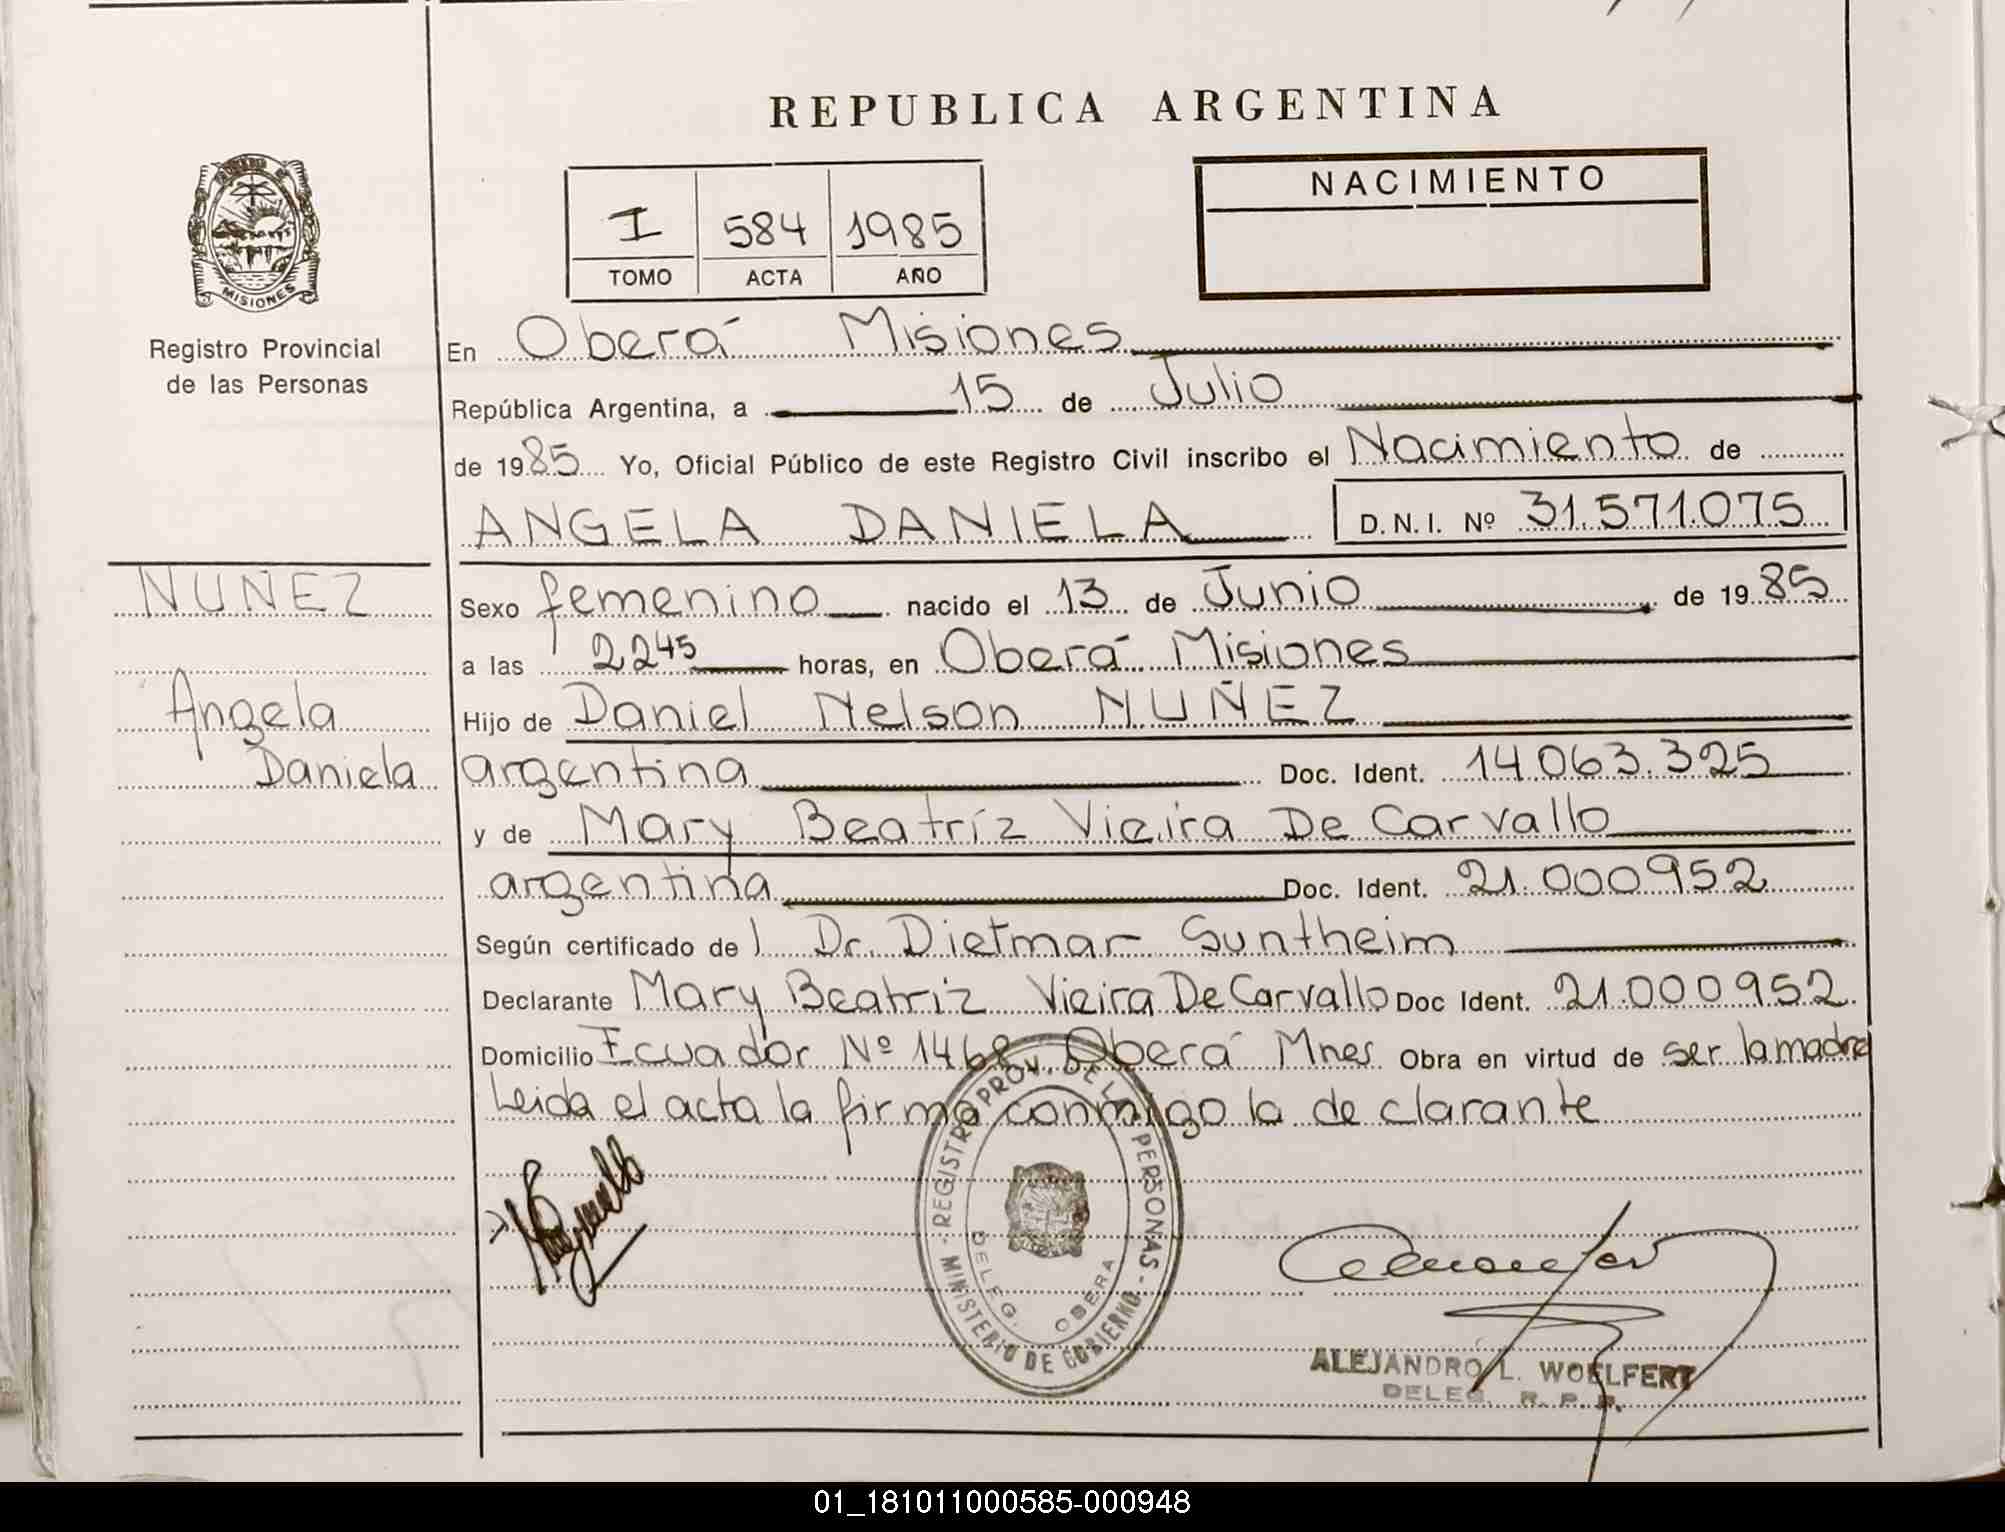 REPUBLICA ARGENTINA
NACIMIENTO
I 584 1985
TOMO ACTA AÑO
MISIONES
Registro Provincial
de las Personas
En Oberá Misiones
República Argentina, a 15 de Julio
de 1985 Yo, Oficial Público de este Registro Civil inscribo el Nacimiento de
ANGELA DANIELA D.N.I. Nº 31.571.075
NUÑEZ
Angela
Daniela
Sexo femenino nacido el 13 de Junio de 1985
a las 2245 horas, en Oberá Misiones
Hijo de Daniel Nelson NUÑEZ
argentina Doc. Ident. 14.063.325
y de Mary Beatríz Vieira De Carvallo
argentina Doc. Ident. 21.000952
Según certificado de l Dr. Dietmar Suntheim
Declarante Mary Beatriz Vieira De Carvallo Doc Ident. 21.000952
Domicilio Ecuador Nº 1468 Oberá Mnes Obra en virtud de ser la madre
Leida el acta la firma conmigo la declarante
REGISTRO PROV. DE LAS PERSONAS - MINISTERIO DE GOBIERNO -
DELEG. OBERA
ALEJANDRO L. WOELFERT
DELEG. R. P. P.
01_181011000585-000948